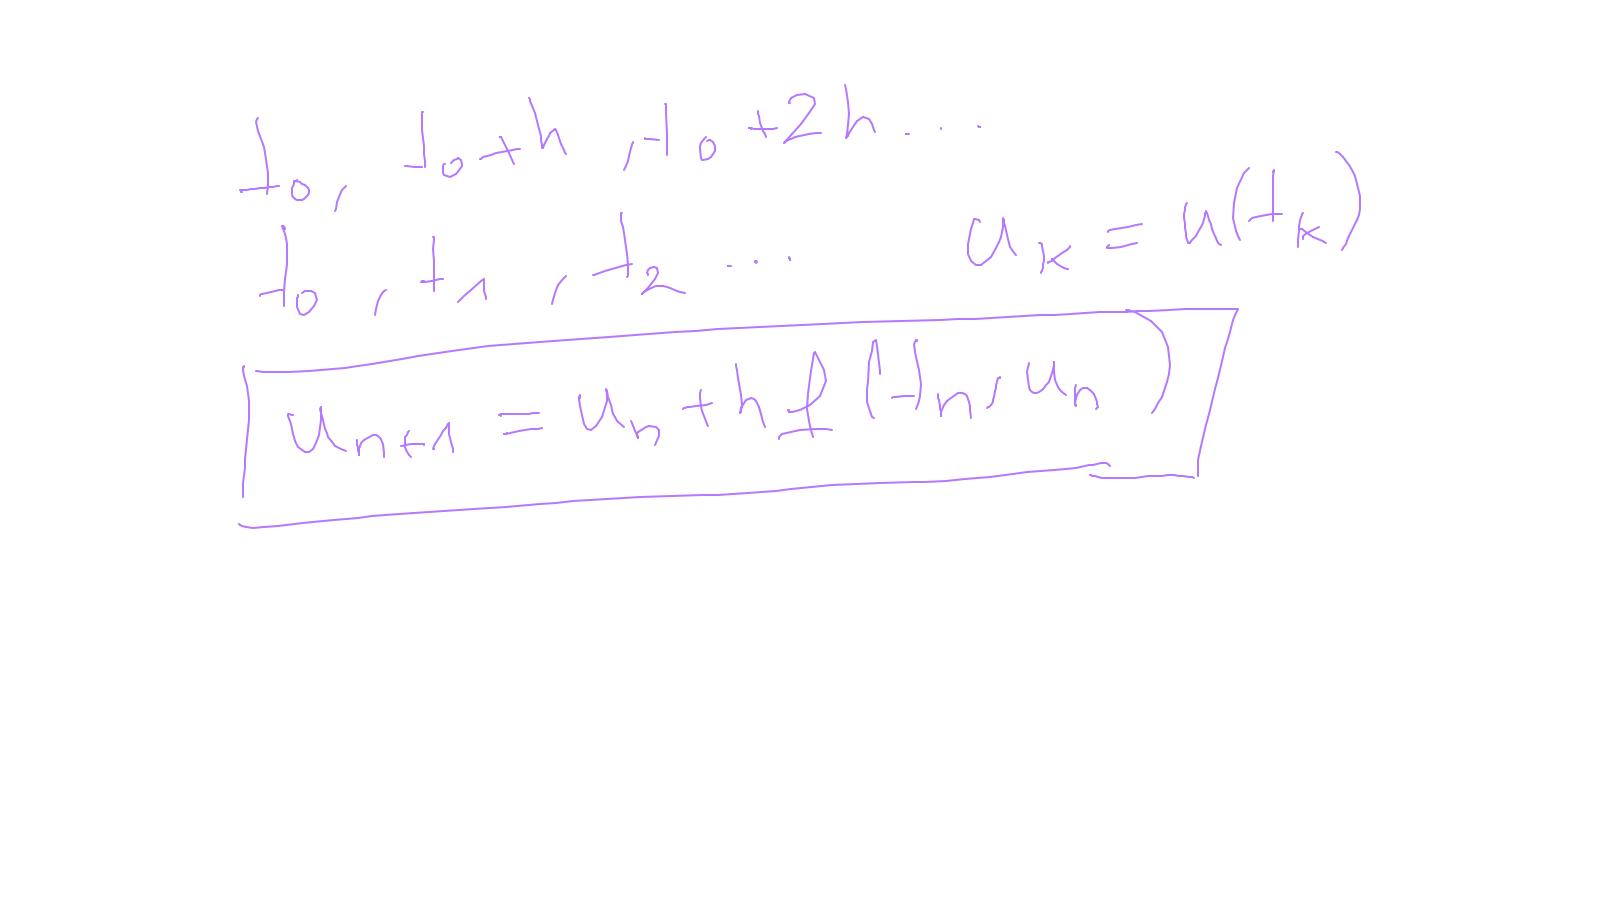 t₀, t₀+h, t₀+2h ...
t₀, t₁, t₂ ...
u_k = u(t_k)
u_{n+1} = u_n + h f(t_n, u_n)